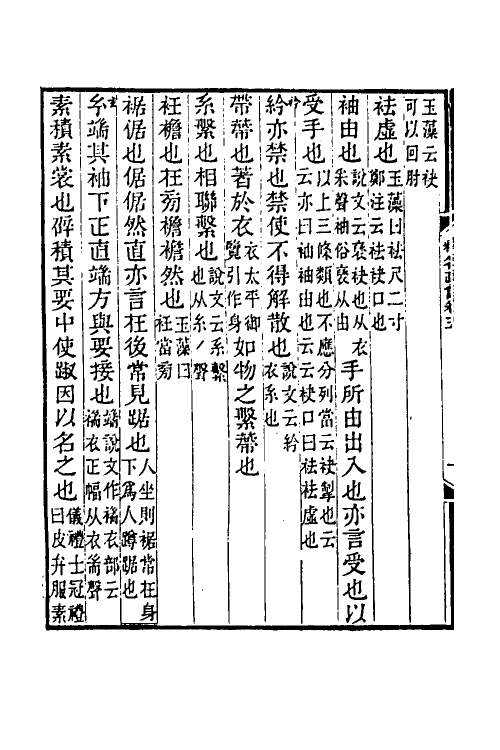 玉藻云袂
可以回肘
袪虛也玉藻曰袪尺二寸
鄭注云袪袂口也
袖由也說文云褎袂也从衣
𥝩聲袖俗褎从由手所由出入也亦言受也以
受手也以上三條類也不應分列當云袂掣也云
云亦曰袖袖由也云云袂口曰袪袪虛也
衿亦禁也禁使不得解散也說文云紟
衣系也
帶蔕也著於衣衣太平御
覽引作身如物之繫蔕也
系繫也相聯繫也說文云系繫
也从糸丿聲
衽襜也在旁襜襜然也玉藻曰
衽當旁
裾倨也倨倨然直亦言在後常見踞也人坐則裾常在身
下爲人蹲踞也
玄端其袖下正直端方與要接也端說文作褍衣部云
褍衣正幅从衣耑聲
素積素裳也辟積其要中使踧因以名之也儀禮士冠禮
曰皮弁服素